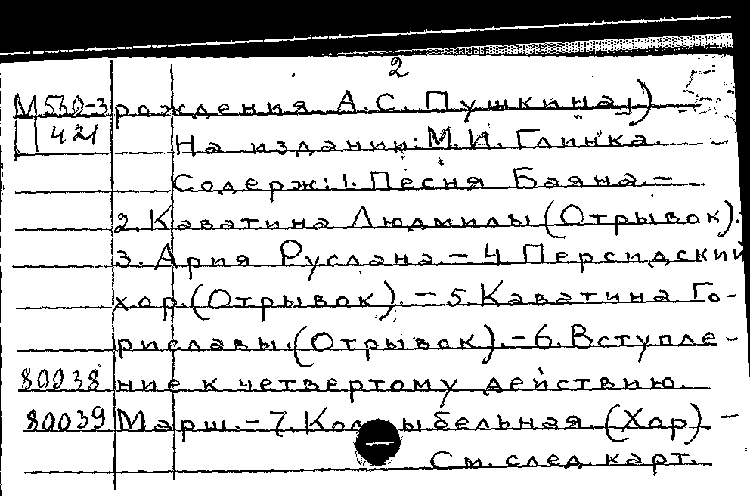 2
М530-3 рождения А.С. Пушкина.)
421 На издании: М.И. Глинка.
Содерж: 1. Песня Баяна. –
2. Каватина Людмилы (Отрывок).
3. Ария Руслана. – 4. Персидский
хор. (Отрывок). – 5. Каватина Го-
риславы. (Отрывок). – 6. Вступле-
80038 ние к четвертому действию.
80039 Марш. – 7. Колыбельная (Хор) –
См. след. карт.